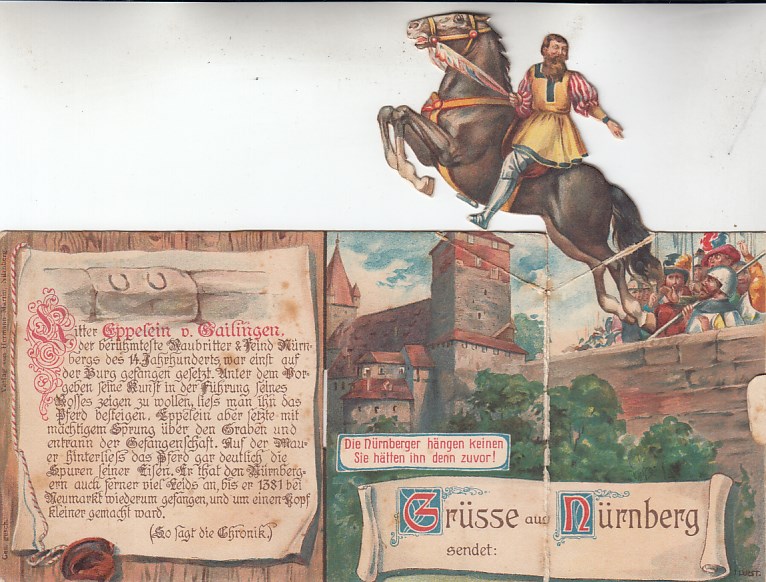 Ritter Eppelein v. Gailingen,
der berühmteste Raubritter & Feind Nürn-
bergs des 14. Jahrhunderts, war einst auf
der Burg gefangen gesetzt. Unter dem Vor-
geben seine Kunst in der Führung seines
Rosses zeigen zu wollen, liess man ihn das
Pferd besteigen. Eppelein aber setzte mit
mächtigem Sprung über den Graben und
entrann der Gefangenschaft. Auf der Mau-
er hinterliess das Pferd gar deutlich die
Spuren seiner Eisen. Er that den Nürnberg-
ern auch ferner viel Leids an, bis er 1381 bei
Neumarkt wiederum gefangen, und um einen Kopf
kleiner gemacht ward.
(So sagt die Chronik.)
Verlag von Hermann Martin, Nürnberg
Ges. gesch.
Die Nürnberger hängen keinen
Sie hätten ihn denn zuvor!
Grüsse aus Nürnberg
sendet: